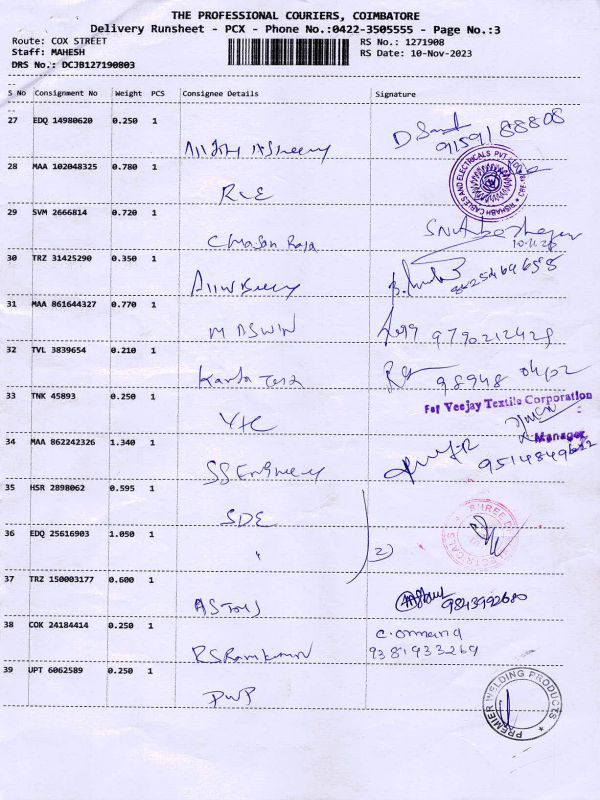 THE PROFESSIONAL COURIERS, COIMBATORE
Delivery Runsheet - PCX - Phone No.:0422-3505555 - Page No.:3
Route: COX STREET
RS No.: 1271908
Staff: MAHESH
RS Date: 10-Nov-2023
DRS No.: DCJB127190803
S No Consignment No Weight PCS Consignee Details Signature
27 EDQ 14980620 0.250 1
9159188808
28 MAA 102048325 0.780 1
RISHABH CABLES AND ELECTRICALS PVT. LTD.
RCE
29 SVM 2666814 0.720 1
10.11.23
30 TRZ 31425290 0.350 1
31 MAA 861644327 0.770 1
M ASWIN
9790212429
32 TVL 3839654 0.210 1
98948 04102
33 TNK 45893 0.250 1
For Veejay Textile Corporation
VTC
Manager
34 MAA 862242326 1.340 1
SS Engineery
35 HSR 2898062 0.595 1
SDE
36 EDQ 25616903 1.050 1
"
2
37 TRZ 150003177 0.600 1
9843992680
38 COK 24184414 0.250 1
9381933269
RS Ramkumar
39 UPT 6062589 0.250 1
PWP
PREMIER WELDING PRODUCTS